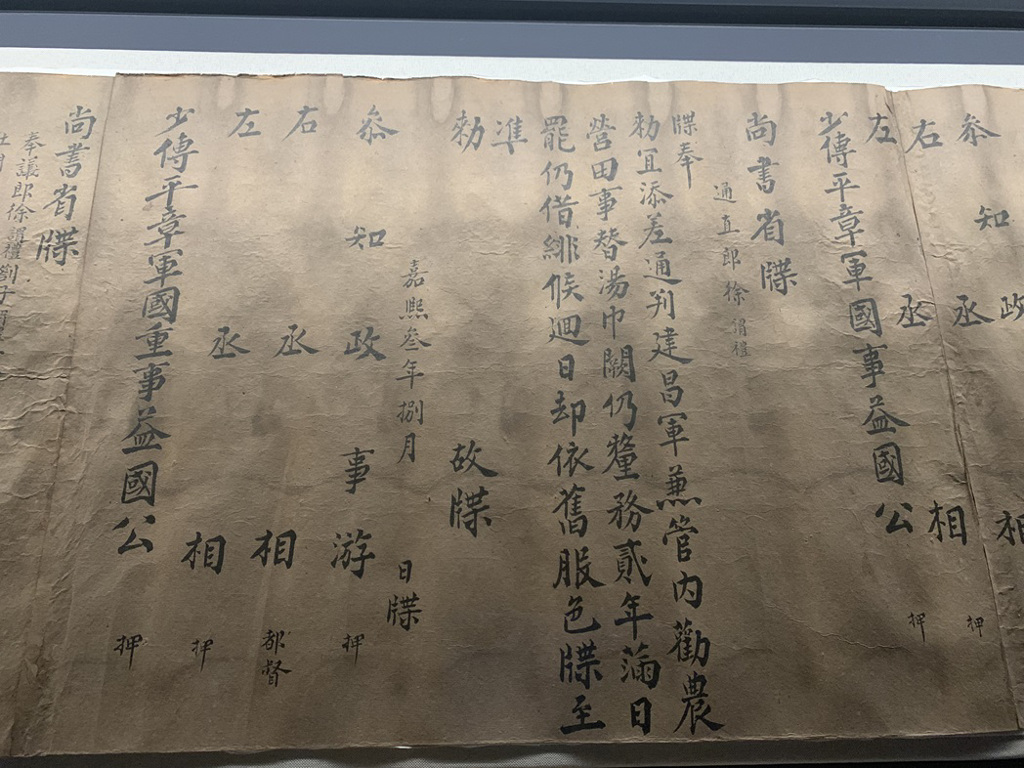 參知政
右丞相押
左丞相押
少傅平章軍國事益國公
尚書省牒
通直郎徐謂禮
牒奉
勑宜添差通判建昌軍兼管内勸農
營田事替湯巾闕仍釐務貳年滿日
罷仍借緋候廻日却依舊服色牒至
准
勑故牒
嘉熙叁年捌月日牒
叅知政事游押
右丞相都督
左丞相押
少傅平章軍國重事益國公押
尚書省牒
奉議郎徐謂禮劄子